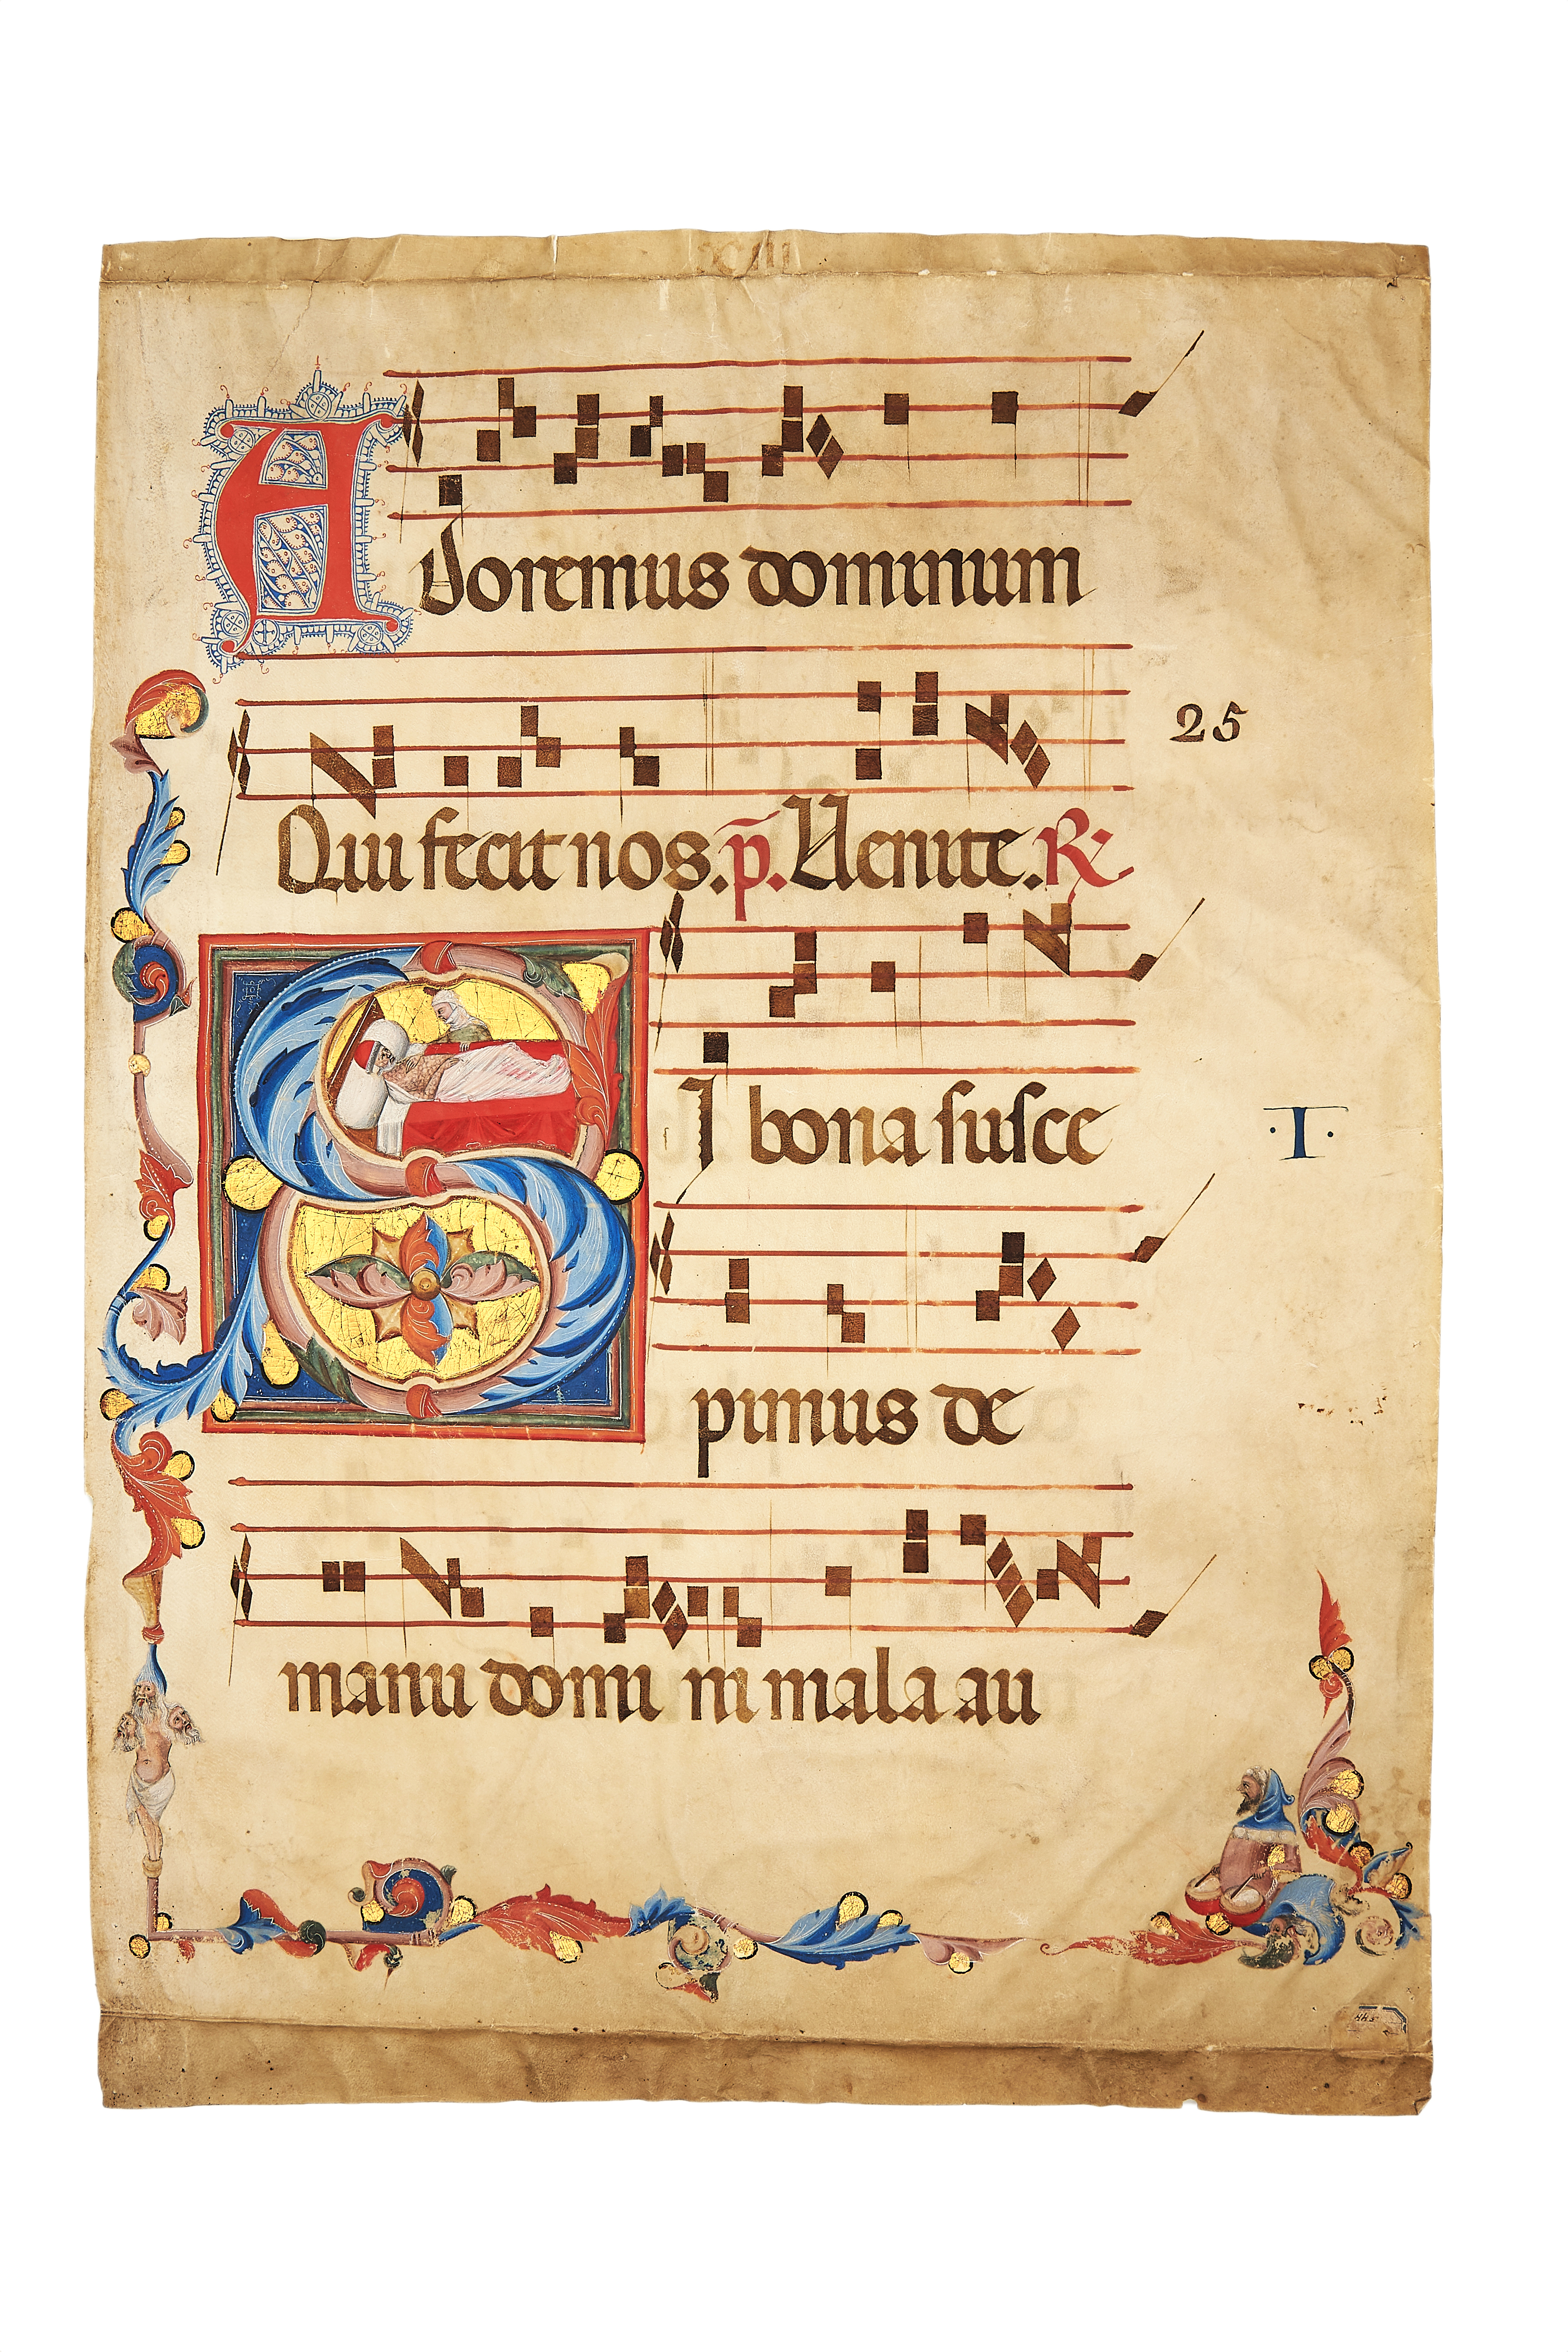 XIII
Adoremus dominum
25
Qui fecit nos. p̄. Venite. R⁊
SI bona susce
·T·
pimus de
manu domi ni mala au